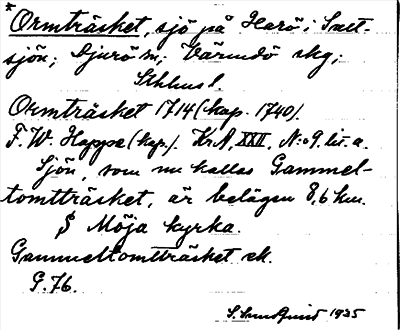 * Ormträsket, sjö på Harö i Salt-
sjön; Djurö sn; Värmdö skg;
Sthlms l.
Ormträsket 1714 (kop. 1740).
F. W. Hoppe (kop.). Kr.A, XXII, N:o 9 lit. a.
Sjön, som nu kallas Gammel-
tomtträsket, är belägen 8,6 km.
S Möja kyrka.
Gammeltomtträsket ek.
G. 76.
S. Lundquist 1935